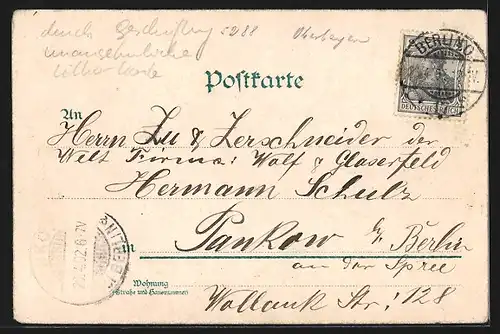 durch 5288 Oberbayern
BERLIN O
Postkarte
DEUTSCHES REICH
An
Herrn Zu & Zerschneider der
Welt Firma: Wolf & Glaserfeld
Hermann Schulz
in Pankow b/ Berlin
an der Spree
Wohnung
(Straße und Hausnummer)
Wollank Str: 128
BERLIN
22.4.02.6-7V